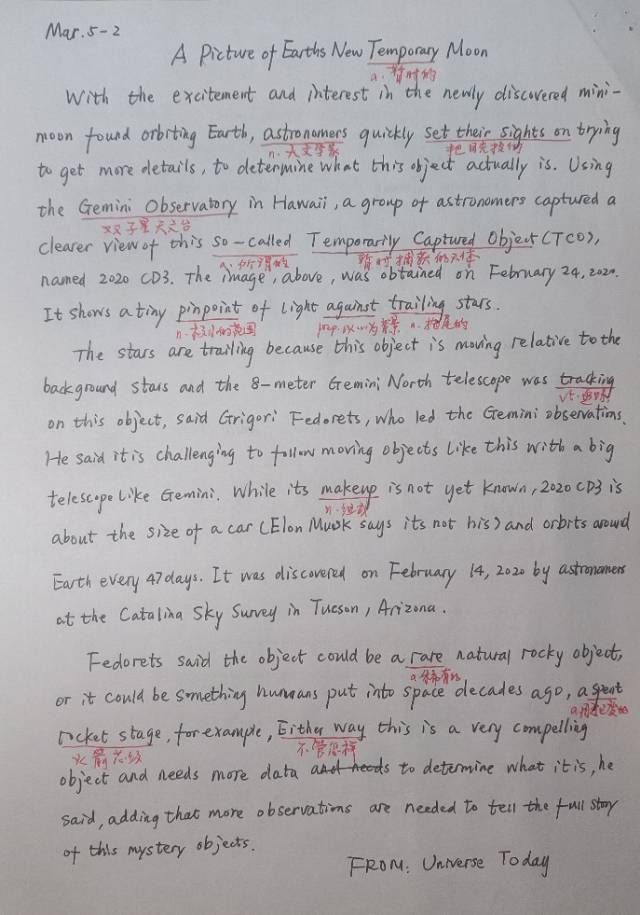 Mar.5-2
A Picture of Earths New Temporary Moon
a.暂时的
With the excitement and interest in the newly discovered mini-
moon found orbiting Earth, astronomers quickly set their sights on trying
n.天文学家 把目光投向
to get more details, to determine what this object actually is. Using
the Gemini Observatory in Hawaii, a group of astronomers captured a
双子星天文台
clearer view of this so-called Temporarily Captured Object (TCO),
a.所谓的 暂时捕获的天体
named 2020 CD3. The image, above, was obtained on February 24, 2020.
It shows a tiny pinpoint of light against trailing stars.
n.极小的范围 prep.以…为背景 n.拖尾的
The stars are trailing because this object is moving relative to the
background stars and the 8-meter Gemini North telescope was tracking
vt.追踪
on this object, said Grigori Fedorets, who led the Gemini observations.
He said it is challenging to follow moving objects like this with a big
telescope like Gemini. While its makeup is not yet known, 2020 CD3 is
n.组成
about the size of a car (Elon Musk says its not his) and orbits around
Earth every 47 days. It was discovered on February 14, 2020 by astronomers
at the Catalina Sky Survey in Tucson, Arizona.
Fedorets said the object could be a rare natural rocky object,
a.稀有的
or it could be something humans put into space decades ago, a spent
rocket stage, for example, Either way this is a very compelling
火箭芯级 不管怎样
object and needs more data and needs to determine what it is, he
said, adding that more observations are needed to tell the full story
of this mystery objects.
FROM: Universe Today